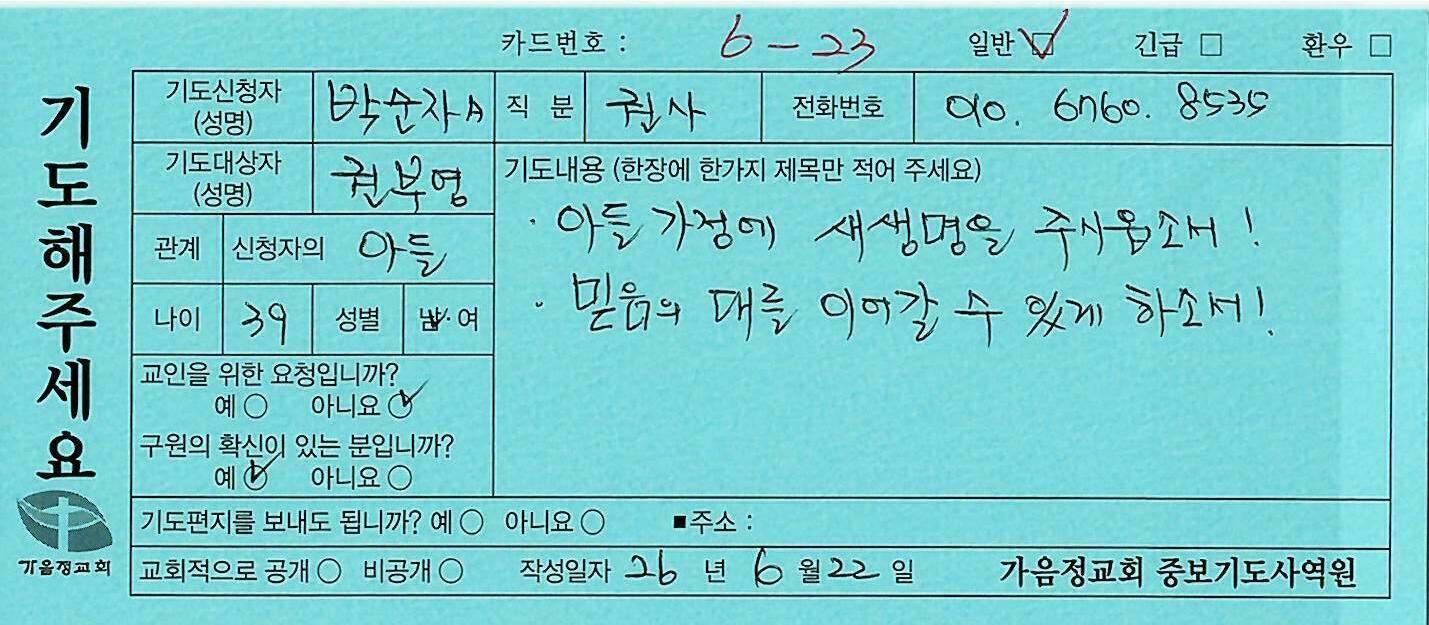 카드번호 : 6-23 일반 ☑ 긴급 □ 환우 □
기도해주세요
가음정교회
기도신청자 (성명) 박순자A 직 분 권사 전화번호 010. 6760. 8535
기도대상자 (성명) 권부영
관계 신청자의 아들
나이 39 성별 남 여
교인을 위한 요청입니까?
예 ○ 아니요 ☑
구원의 확신이 있는 분입니까?
예 ☑ 아니요 ○
기도내용 (한장에 한가지 제목만 적어 주세요)
· 아들 가정에 새생명을 주시옵소서!
· 믿음의 대를 이어갈 수 있게 하소서!
기도편지를 보내도 됩니까? 예 ○ 아니요 ○ ■주소 :
교회적으로 공개 ○ 비공개 ○ 작성일자 26 년 6 월 22 일 가음정교회 중보기도사역원